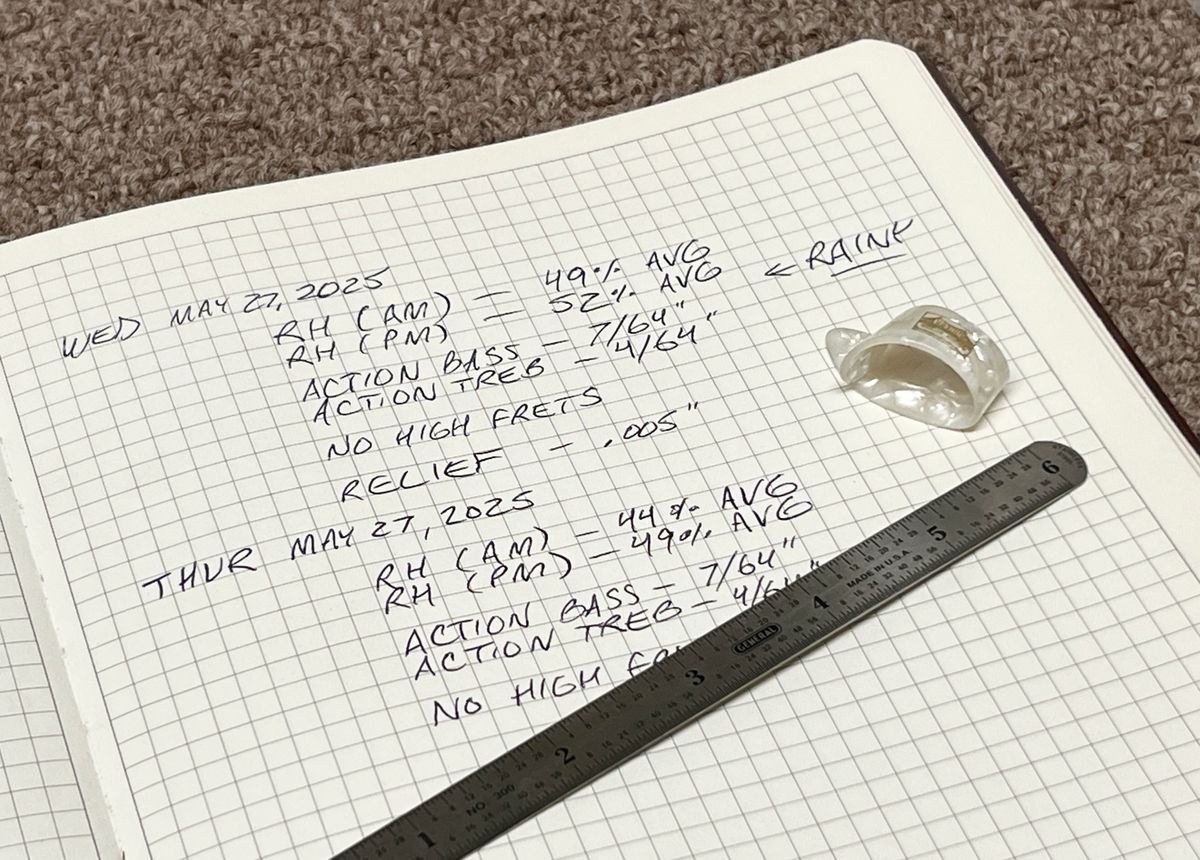 WED MAY 27, 2025
RH (AM) - 49% AVG
RH (PM) - 52% AVG ← RAINY
ACTION BASS - 7/64"
ACTION TREB - 4/64"
NO HIGH FRETS
RELIEF - .005"
THUR MAY 27, 2025
RH (AM) - 44% AVG
RH (PM) - 49% AVG
ACTION BASS - 7/64"
ACTION TREB - 4/6
NO HIGH
1 2 3 4 5 6
NO. 300 GENERAL MADE IN U.S.A.